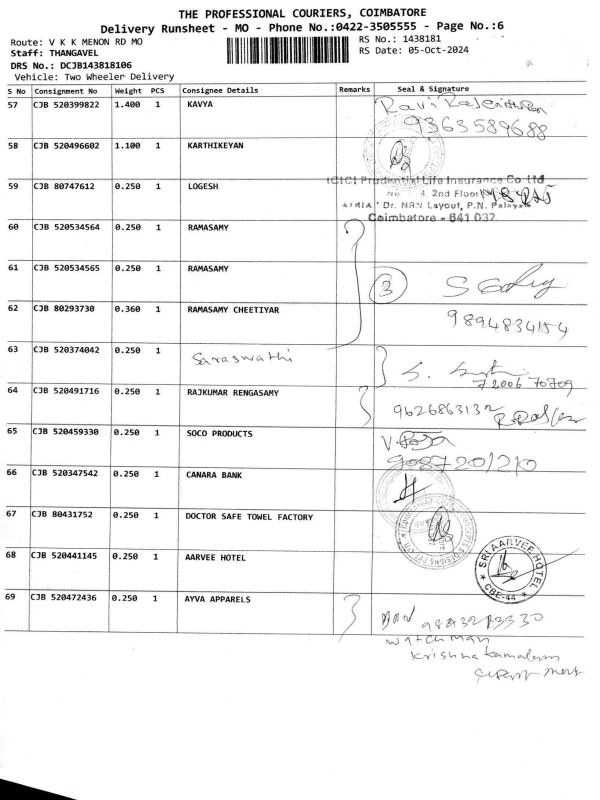 THE PROFESSIONAL COURIERS, COIMBATORE
Delivery Runsheet - MO - Phone No.:0422-3505555 - Page No.:6
Route: V K K MENON RD MO
RS No.: 1438181
Staff: THANGAVEL
RS Date: 05-Oct-2024
DRS No.: DCJB143818106
Vehicle: Two Wheeler Delivery
S No Consignment No Weight PCS Consignee Details Remarks Seal & Signature
57 CJB 520399822 1.400 1 KAVYA
9363589688
58 CJB 520496602 1.100 1 KARTHIKEYAN
59 CJB 80747612 0.250 1 LOGESH
ICICI Prudential Life Insurance Co Ltd
3, 2nd Floor
Dr. NRN Layout, P.N. Palayam
Coimbatore - 641 037
60 CJB 520534564 0.250 1 RAMASAMY
61 CJB 520534565 0.250 1 RAMASAMY
3
62 CJB 80293730 0.360 1 RAMASAMY CHEETIYAR
9894834154
63 CJB 520374042 0.250 1 Saraswathi
72006 70709
64 CJB 520491716 0.250 1 RAJKUMAR RENGASAMY
9626863132
65 CJB 520459330 0.250 1 SOCO PRODUCTS
9087201210
66 CJB 520347542 0.250 1 CANARA BANK
67 CJB 80431752 0.250 1 DOCTOR SAFE TOWEL FACTORY
68 CJB 520441145 0.250 1 AARVEE HOTEL
SRI AARVEE HOTEL
CBE-44
69 CJB 520472436 0.250 1 AYVA APPARELS
watchman
Krishna Kamalam